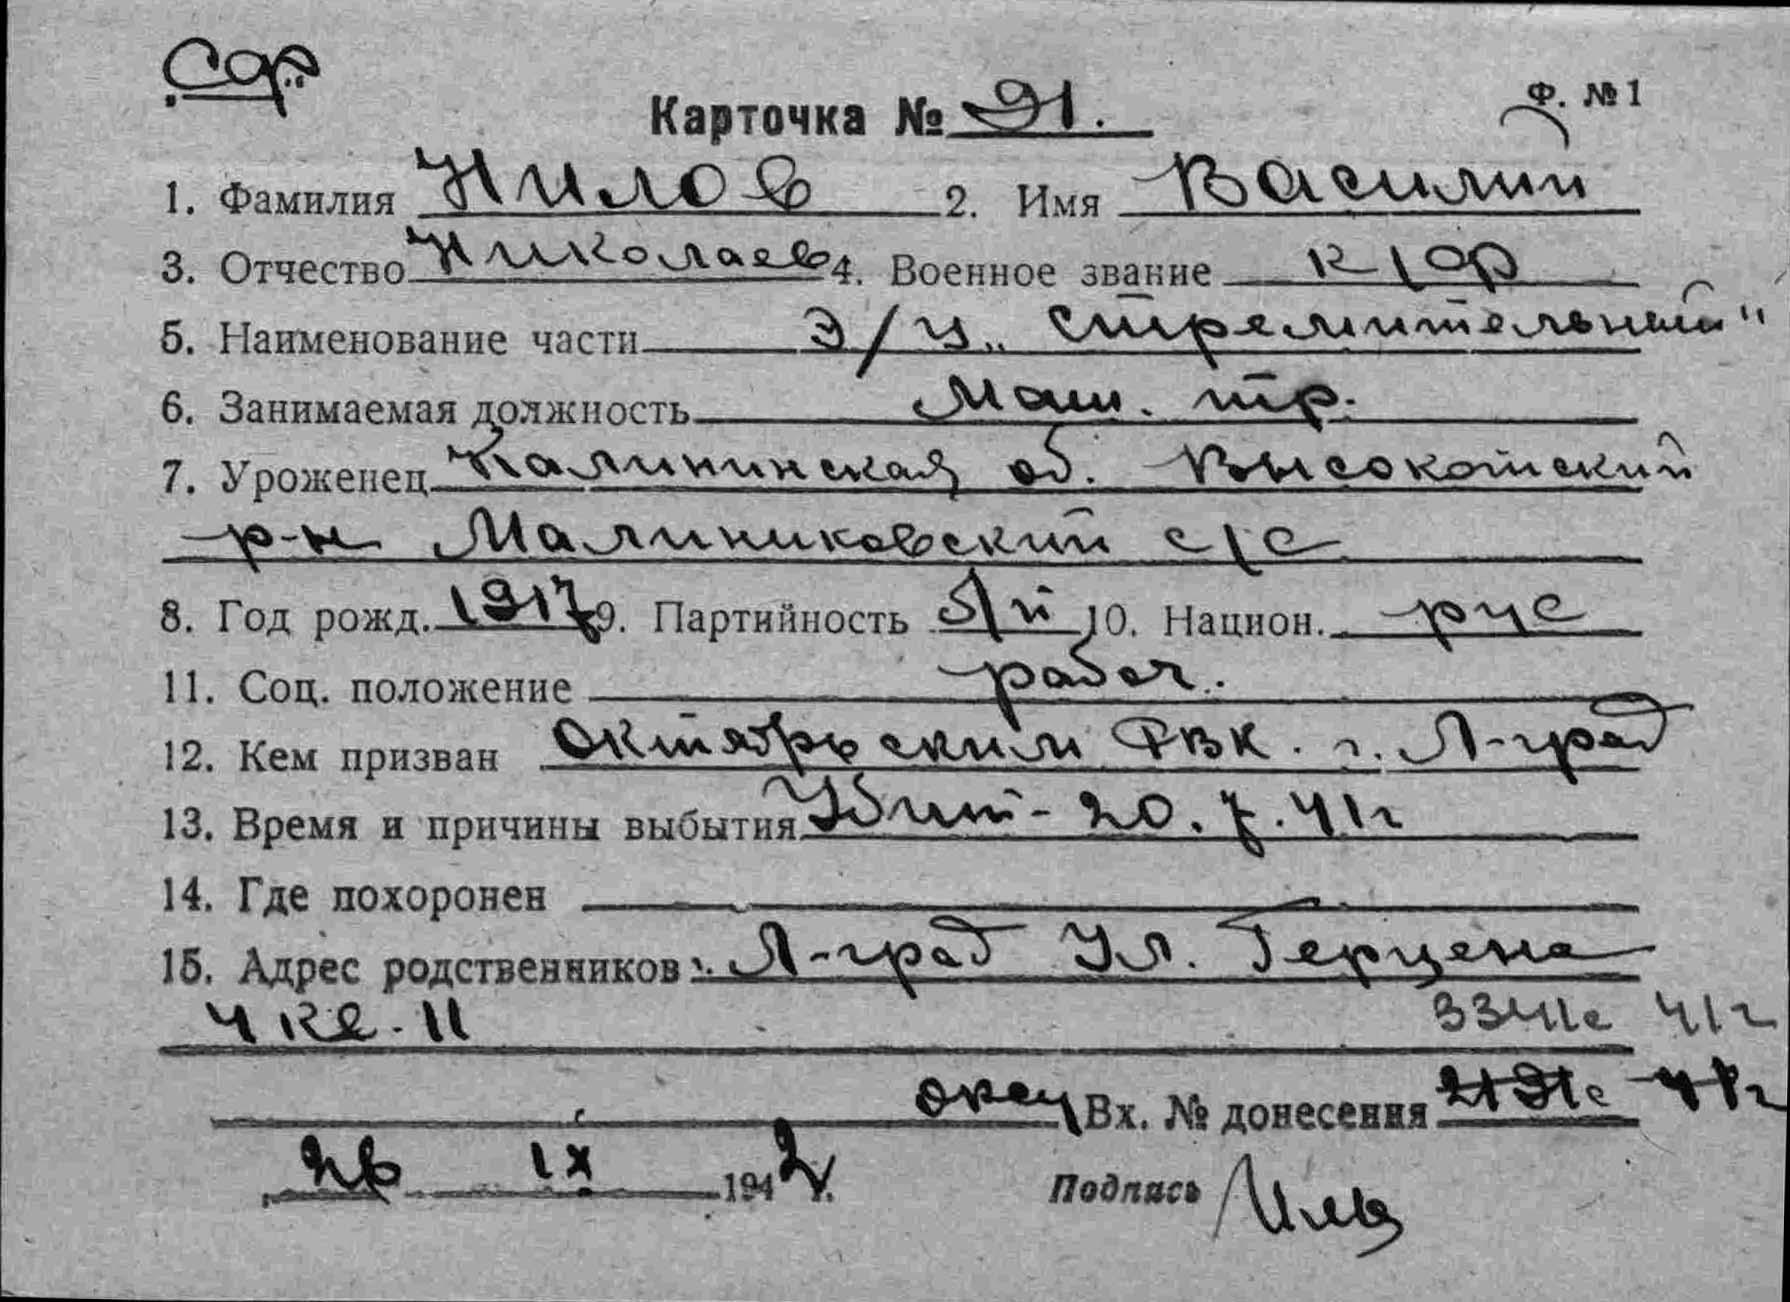 Сдр
Ф. №1
Карточка № 91.
1. Фамилия Нилов 2. Имя Василий
3. Отчество Николаев 4. Военное звание к/ор
5. Наименование части Э/м „Стремительный"
6. Занимаемая должность Маш. тр.
7. Уроженец Калининская об. Высокотский
р-н Малиниковский с/с
8. Год рожд. 1917 9. Партийность б/п 10. Национ. рус
11. Соц. положение рабоч.
12. Кем призван Октябрьским РВК. г. Л-град
13. Время и причины выбытия Убит - 20.7.41г
14. Где похоронен
15. Адрес родственников: Л-град Ул. Герцена
4 кв. 11
41г
Вх. № донесения 2191с 41г
26 IX 1942 г.
Подпись